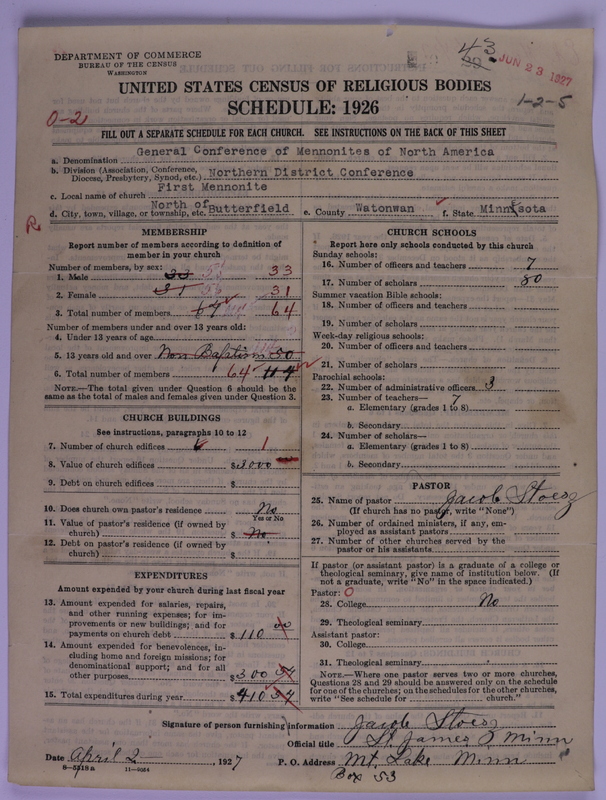 DEPARTMENT OF COMMERCE
BUREAU OF THE CENSUS
WASHINGTON
43
JUN 23 1927
UNITED STATES CENSUS OF RELIGIOUS BODIES
SCHEDULE: 1926
1-2-5
0-2
FILL OUT A SEPARATE SCHEDULE FOR EACH CHURCH. SEE INSTRUCTIONS ON THE BACK OF THIS SHEET
a. Denomination General Conference of Mennonites of North America
b. Division (Association, Conference, Diocese, Presbytery, Synod, etc.) Northern District Conference
c. Local name of church First Mennonite
d. City, town, village, or township, etc. North of Butterfield e. County Watonwan f. State Minnesota
R
MEMBERSHIP
Report number of members according to definition of
member in your church
Number of members, by sex:
1. Male 33 33
2. Female 31 31
3. Total number of members 64 64
Number of members under and over 13 years old:
4. Under 13 years of age
5. 13 years old and over Non Baptism 50
6. Total number of members 64 114
NOTE.—The total given under Question 6 should be the
same as the total of males and females given under Question 3.
CHURCH BUILDINGS
See instructions, paragraphs 10 to 12
7. Number of church edifices 1
8. Value of church edifices $3000
9. Debt on church edifices $
10. Does church own pastor's residence No
Yes or No
11. Value of pastor's residence (if owned by
church) $ No
12. Debt on pastor's residence (if owned by
church) $
EXPENDITURES
Amount expended by your church during last fiscal year
13. Amount expended for salaries, repairs,
and other running expenses; for im-
provements or new buildings; and for
payments on church debt $ 110 00
14. Amount expended for benevolences, in-
cluding home and foreign missions; for
denominational support; and for all
other purposes $ 300 54
15. Total expenditures during year $ 410 54
CHURCH SCHOOLS
Report here only schools conducted by this church
Sunday schools:
16. Number of officers and teachers 7
17. Number of scholars 80
Summer vacation Bible schools:
18. Number of officers and teachers
19. Number of scholars
Week-day religious schools:
20. Number of officers and teachers
21. Number of scholars
Parochial schools:
22. Number of administrative officers 3
23. Number of teachers— 7
a. Elementary (grades 1 to 8)
b. Secondary
24. Number of scholars—
a. Elementary (grades 1 to 8)
b. Secondary
PASTOR
25. Name of pastor Jacob Stoesz
(If church has no pastor, write "None")
26. Number of ordained ministers, if any, em-
ployed as assistant pastors
27. Number of other churches served by the
pastor or his assistants
If pastor (or assistant pastor) is a graduate of a college or
theological seminary, give name of institution below. (If
not a graduate, write "No" in the space indicated.)
Pastor: 0
28. College No
29. Theological seminary
Assistant pastor:
30. College
31. Theological seminary
NOTE.—Where one pastor serves two or more churches,
Questions 28 and 29 should be answered only on the schedule
for one of the churches; on the schedules for the other churches,
write "See schedule for church."
Signature of person furnishing information Jacob Stoesz
Official title St. James Minn
Date April 2, 1927 P. O. Address Mt. Lake Minn
8-5518a 11-9054
Box 53